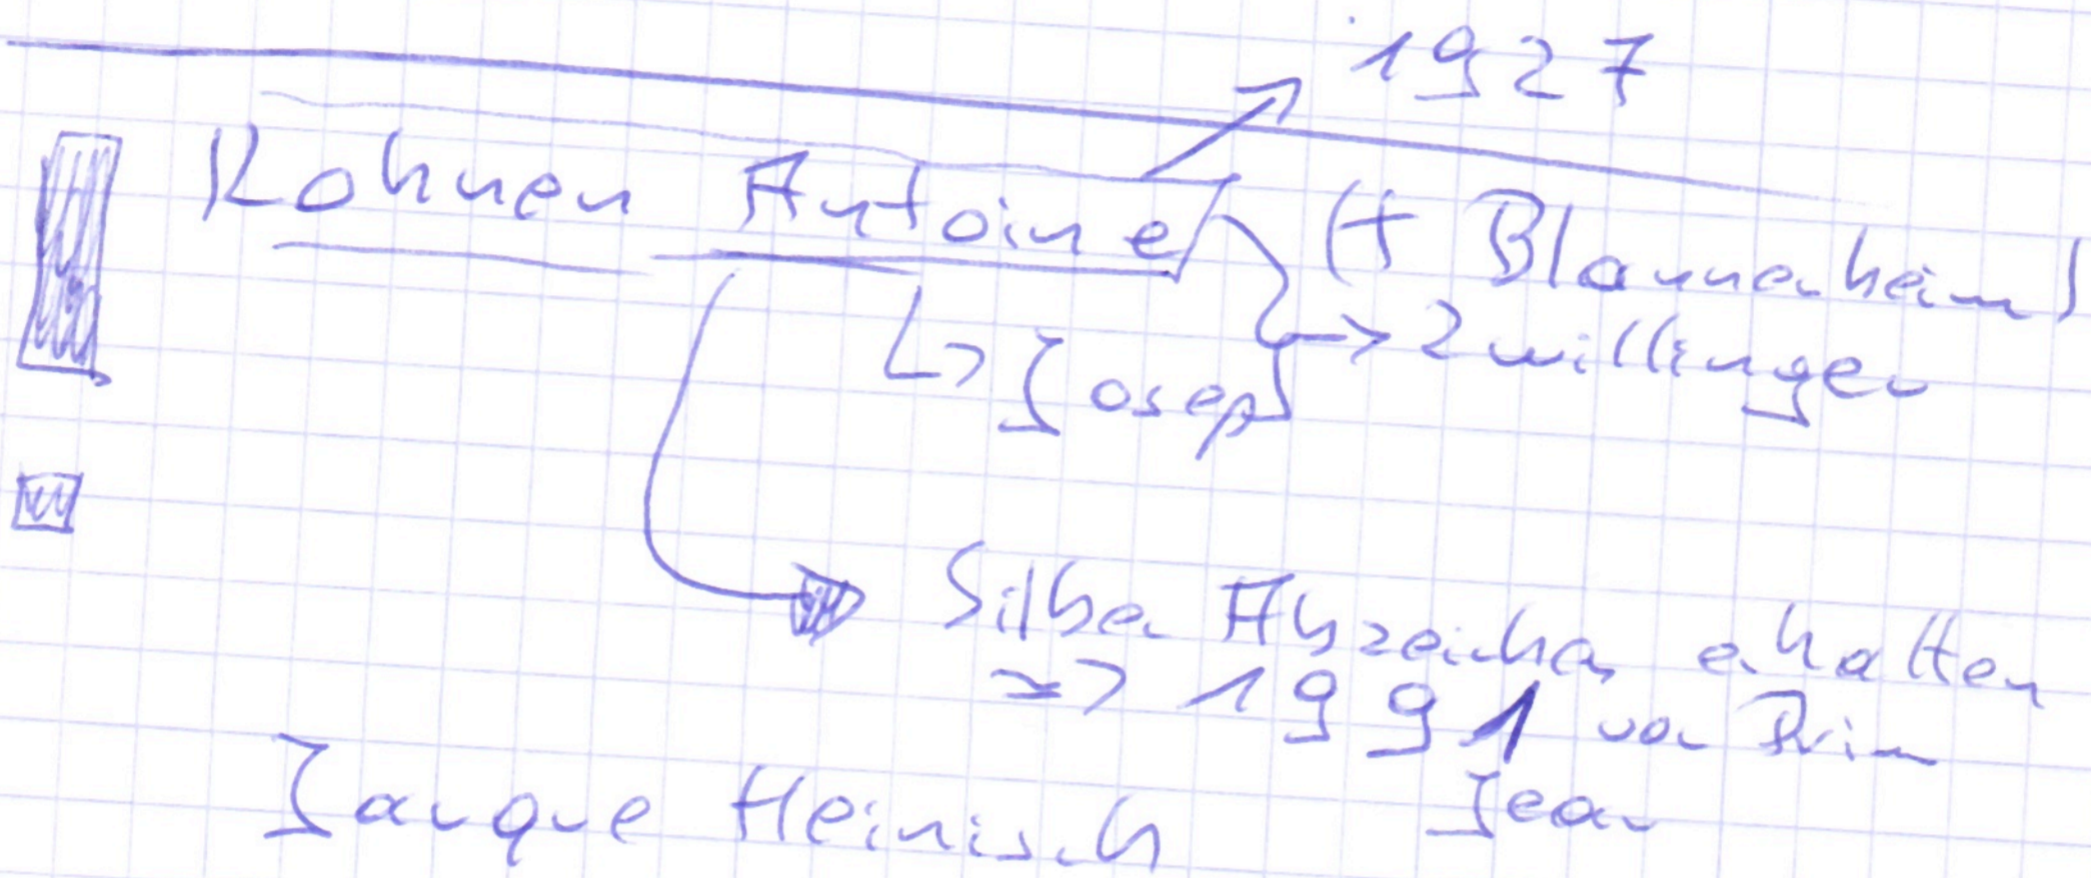 1927
Kohnen Antoine († Blannenheim)
→ Joseph → Zwillinger
Silber Abzeichen erhalten
=> 1991 von Prinz
Jean
Jacque Heinisch